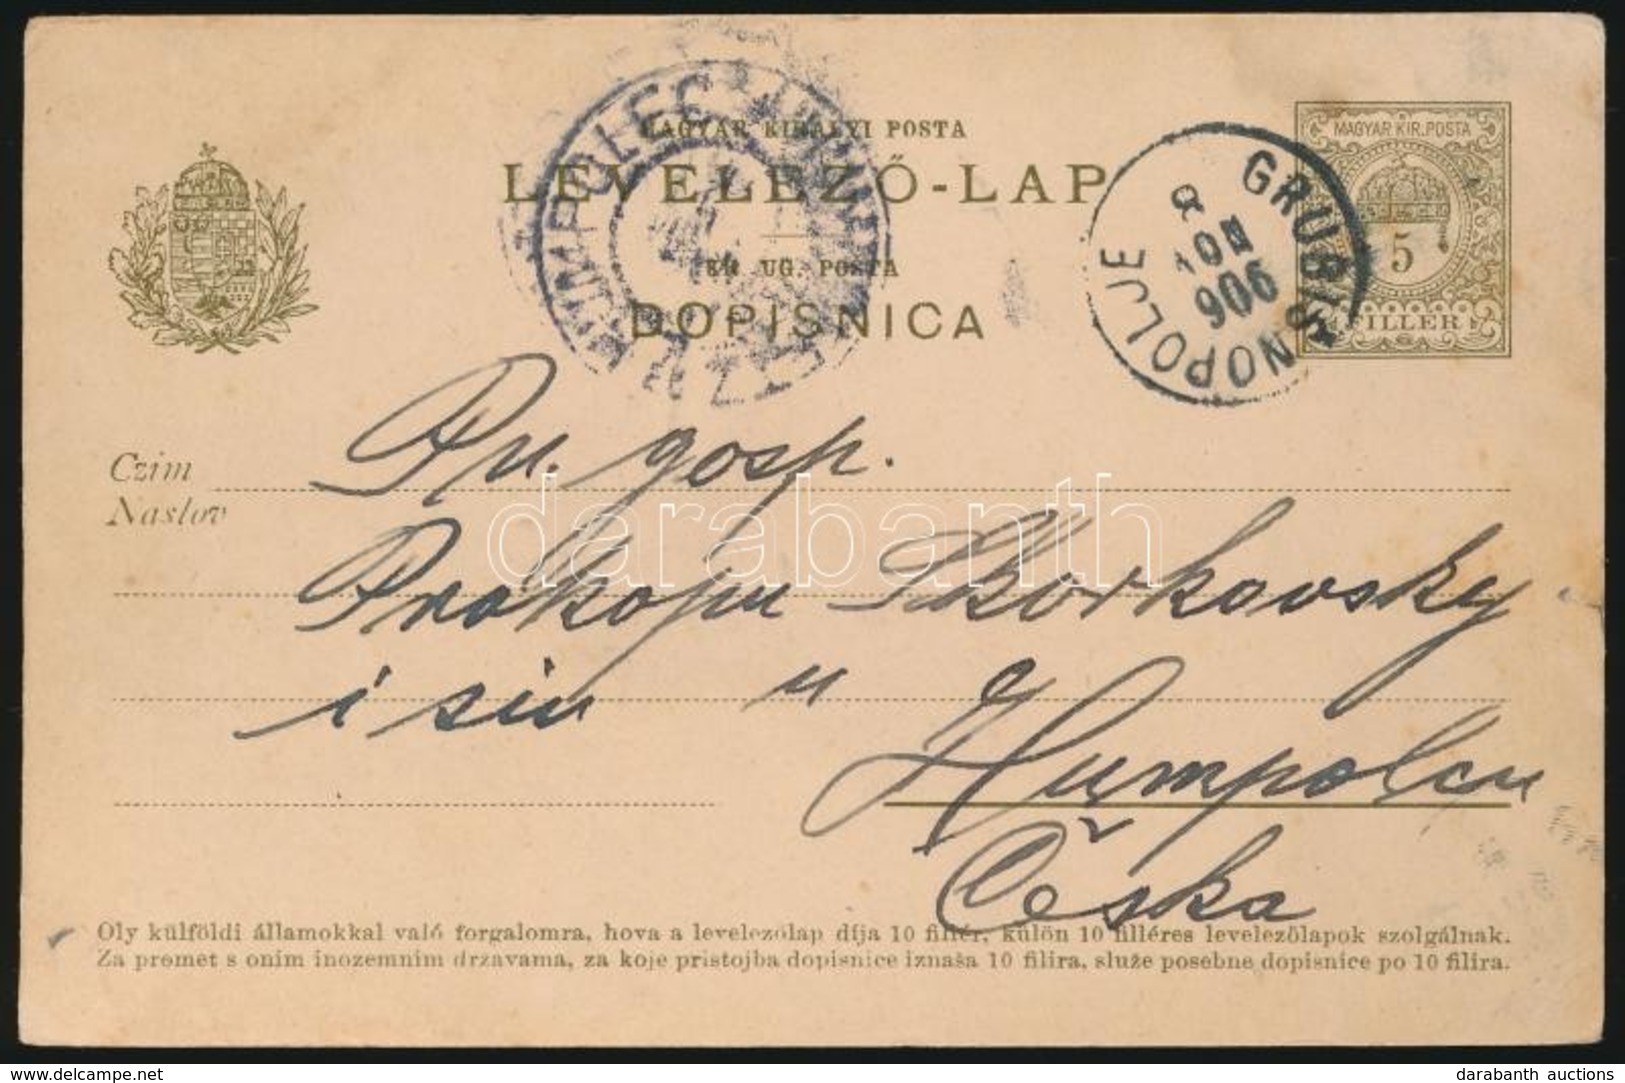 MAGYAR KIRÁLYI POSTA
LEVELEZŐ-LAP
KR. UG. POSTA
DOPISNICA
HUMPOLEC
GRUBIŠNOPOLJE
906
MAGYAR KIR. POSTA
5
FILLER
Czim
Naslov
Pn. gosp.
Prokopu Skorkovsky
i sin u
Humpolcu
Česka
Oly külföldi államokkal való forgalomra, hova a levelezőlap díja 10 fillér, külön 10 filléres levelezőlapok szolgálnak.
Za promet s onim inozemnim državama, za koje pristojba dopisnice iznaša 10 filira, služe posebne dopisnice po 10 filira.
darabanth
https://www.delcampe.net
darabanth auctions